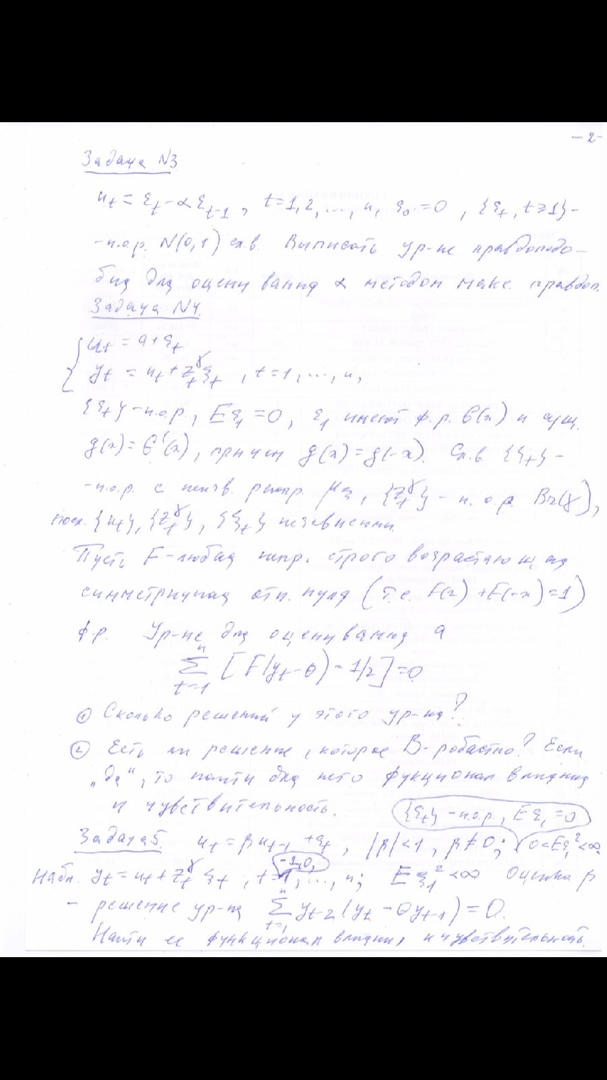 - 2 -
Задача N3
u_t = ε_t - αε_{t-1}, t=1,2,...,n, ε_0 = 0, {ε_t, t≥1} -
- н.о.р. N(0,1) сл.в. Выписать ур-ие правдоподо-
бия для оценивания α методом макс. правдоп.
Задача N4.
{ u_t = a + ε_t
y_t = u_t + z_t^γ ξ_t, t=1,...,n,
{ε_t} - н.о.р., Eε_1 = 0, ε_1 имеет ф.р. G(x) и сущ.
g(x) = G'(x), причем g(x) = g(-x). Сл.в. {ξ_t} -
- н.о.р. с неизв. распр. μ_ξ, {z_t^γ} - н.о.р. Br(γ),
посл. {u_t}, {z_t^γ}, {ξ_t} независимы.
Пусть F - любая непр. строго возрастающая
симметричная отн. нуля (т.е. F(x) + F(-x) = 1)
ф.р. Ур-ие для оценивания a
∑_{t=1}^{n} [F(y_t - θ) - 1/2] = 0
① Сколько решений у этого ур-ия?
② Есть ли решение, которое B-робастно? Если
"да", то найти для него функционал влияния
и чувствительность. {ε_t} - н.о.р., Eε_1 = 0
Задача 5. u_t = βu_{t-1} + ε_t, |β|<1, β≠0; 0<Eε_1^2<∞
Набл. y_t = u_t + z_t^γ ξ_t, t = -1,0,1,...,n; Eξ_1^2 < ∞ Оценка β
- решение ур-ия ∑_{t=1}^{n} y_{t-2}(y_t - θy_{t-1}) = 0.
Найти ее функционал влияния и чувствительность.